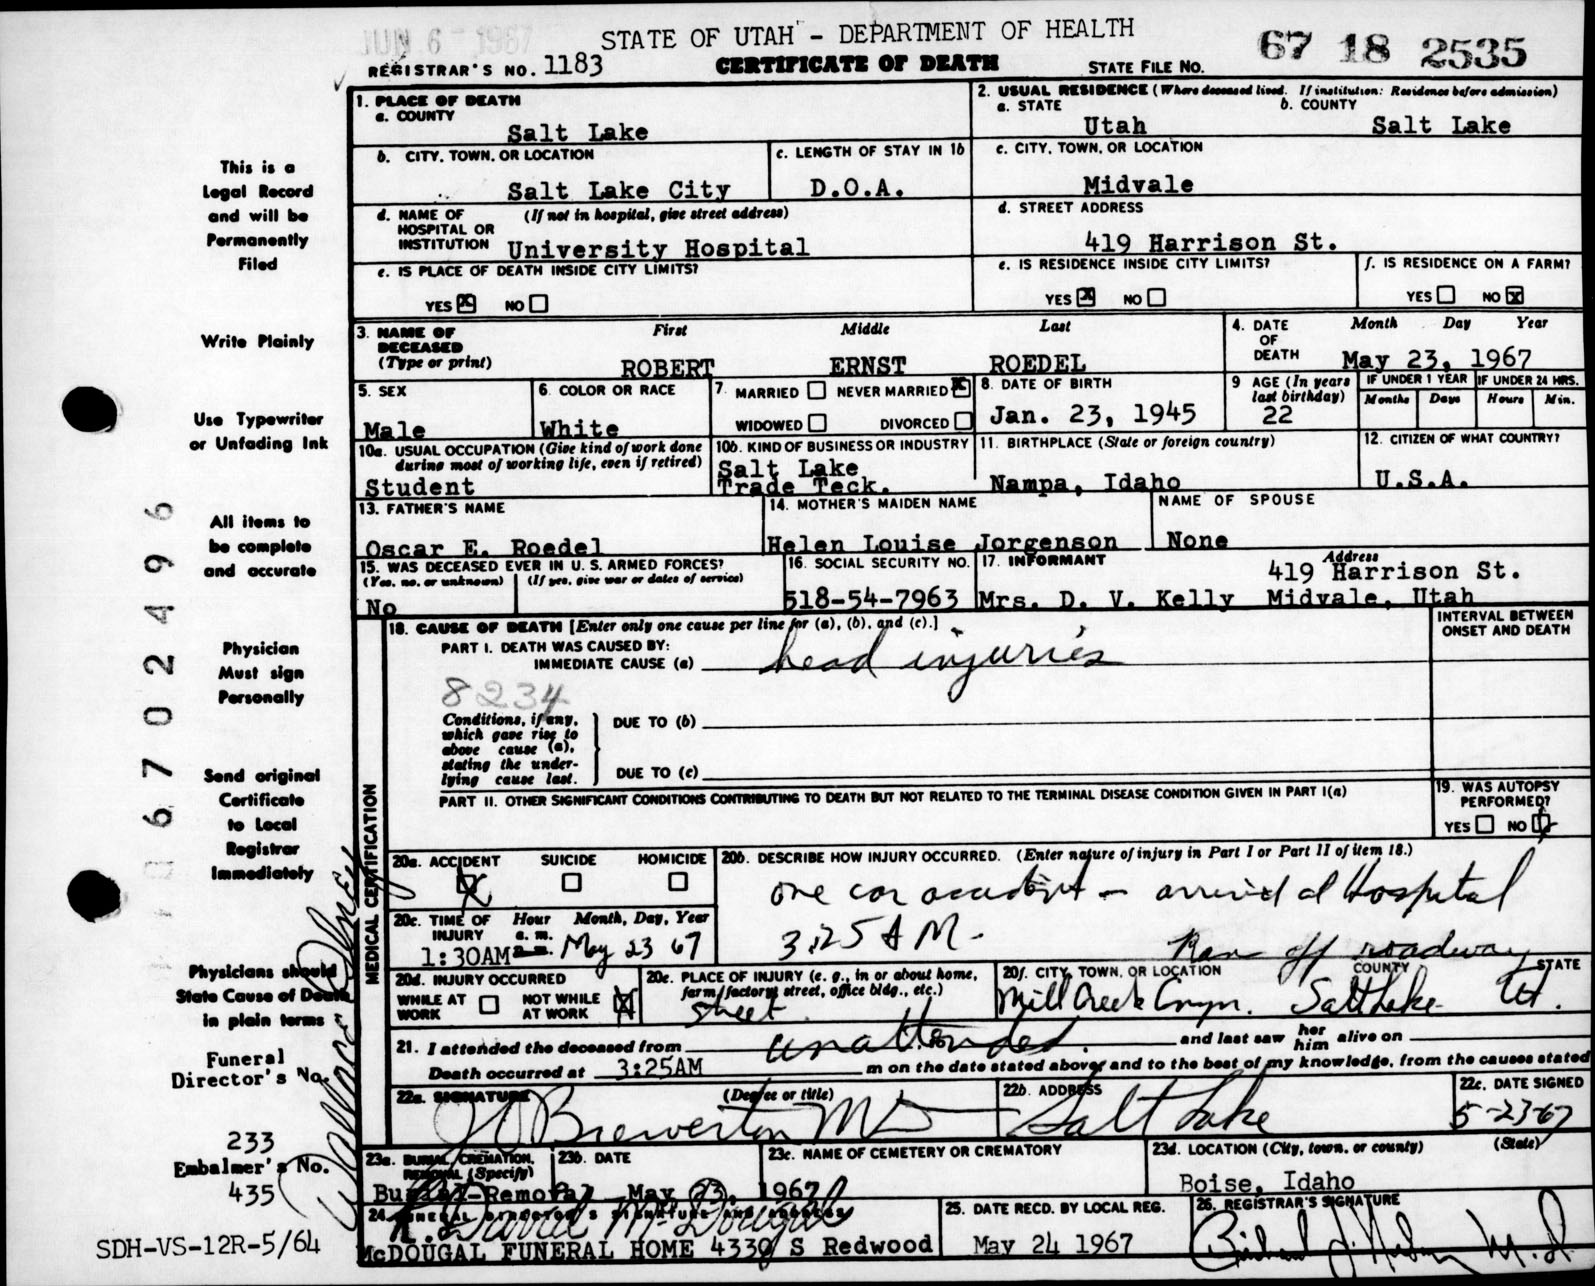 JUN 6 - 1967
STATE OF UTAH - DEPARTMENT OF HEALTH
67 18 2535
REGISTRAR'S NO. 1183
CERTIFICATE OF DEATH
STATE FILE NO.
This is a
Legal Record
and will be
Permanently
Filed
Write Plainly
Use Typewriter
or Unfading Ink
All items to
be complete
and accurate
Physician
Must sign
Personally
Send original
Certificate
to Local
Registrar
Immediately
Physicians should
State Cause of Death
in plain terms
Funeral
Director's No.
233
Embalmer's No.
435
SDH-VS-12R-5/64
6702496
1. PLACE OF DEATH
a. COUNTY
Salt Lake
2. USUAL RESIDENCE (Where deceased lived. If institution: Residence before admission)
a. STATE
b. COUNTY
Utah
Salt Lake
b. CITY, TOWN, OR LOCATION
Salt Lake City
c. LENGTH OF STAY IN 1b
D.O.A.
c. CITY, TOWN, OR LOCATION
Midvale
d. NAME OF HOSPITAL OR INSTITUTION
(If not in hospital, give street address)
University Hospital
d. STREET ADDRESS
419 Harrison St.
e. IS PLACE OF DEATH INSIDE CITY LIMITS?
YES X NO
e. IS RESIDENCE INSIDE CITY LIMITS?
YES X NO
f. IS RESIDENCE ON A FARM?
YES NO X
3. NAME OF DECEASED
(Type or print)
First Middle Last
ROBERT ERNST ROEDEL
4. DATE OF DEATH
Month Day Year
May 23, 1967
5. SEX
Male
6. COLOR OR RACE
White
7. MARRIED NEVER MARRIED X
WIDOWED DIVORCED
8. DATE OF BIRTH
Jan. 23, 1945
9 AGE (In years last birthday)
22
IF UNDER 1 YEAR
Months Days
IF UNDER 24 HRS.
Hours Min.
10a. USUAL OCCUPATION (Give kind of work done during most of working life, even if retired)
Student
10b. KIND OF BUSINESS OR INDUSTRY
Salt Lake
Trade Teck.
11. BIRTHPLACE (State or foreign country)
Nampa, Idaho
12. CITIZEN OF WHAT COUNTRY?
U.S.A.
13. FATHER'S NAME
Oscar E. Roedel
14. MOTHER'S MAIDEN NAME
Helen Louise Jorgenson
NAME OF SPOUSE
None
15. WAS DECEASED EVER IN U. S. ARMED FORCES?
(Yes, no, or unknown) (If yes, give war or dates of service)
No
16. SOCIAL SECURITY NO.
518-54-7963
17. INFORMANT
Address
419 Harrison St.
Mrs. D. V. Kelly Midvale, Utah
MEDICAL CERTIFICATION
18. CAUSE OF DEATH [Enter only one cause per line for (a), (b), and (c).]
PART I. DEATH WAS CAUSED BY:
IMMEDIATE CAUSE (a) head injuries
INTERVAL BETWEEN
ONSET AND DEATH
8234
Conditions, if any,
which gave rise to
above cause (a),
stating the under-
lying cause last.
DUE TO (b)
DUE TO (c)
PART II. OTHER SIGNIFICANT CONDITIONS CONTRIBUTING TO DEATH BUT NOT RELATED TO THE TERMINAL DISEASE CONDITION GIVEN IN PART I(a)
19. WAS AUTOPSY
PERFORMED?
YES NO X
20a. ACCIDENT SUICIDE HOMICIDE
X
20b. DESCRIBE HOW INJURY OCCURRED. (Enter nature of injury in Part I or Part II of item 18.)
one car accident - arrived at Hospital
3:25 AM.
Ran off roadway
20c. TIME OF INJURY
Hour Month, Day, Year
a. m.
1:30AM May 23 67
20d. INJURY OCCURRED
WHILE AT WORK NOT WHILE AT WORK X
20e. PLACE OF INJURY (e. g., in or about home, farm, factory, street, office bldg., etc.)
street
20f. CITY, TOWN, OR LOCATION COUNTY STATE
Mill Creek Cnyn. Salt Lake Ut.
21. I attended the deceased from unattended. and last saw her him alive on
Death occurred at 3:25AM m on the date stated above; and to the best of my knowledge, from the causes stated
22a. SIGNATURE (Degree or title)
Brewerton MD
22b. ADDRESS
Salt Lake
22c. DATE SIGNED
5-23-67
23a. BURIAL, CREMATION, REMOVAL (Specify)
Burial-Removal
23b. DATE
May 23, 1967
23c. NAME OF CEMETERY OR CREMATORY
23d. LOCATION (City, town, or county) (State)
Boise, Idaho
24. FUNERAL DIRECTOR'S SIGNATURE AND ADDRESS
R. David McDougal
McDOUGAL FUNERAL HOME 4330 S Redwood
25. DATE RECD. BY LOCAL REG.
May 24 1967
26. REGISTRAR'S SIGNATURE
M.D.